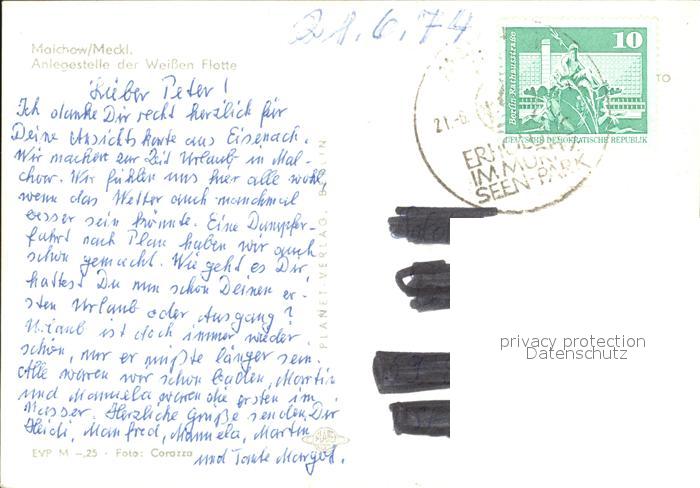 21.6.74
Malchow/Meckl.
Anlegestelle der Weißen Flotte
Lieber Peter!
Ich danke Dir recht herzlich für
Deine Ansichtskarte aus Eisenach.
Wir machen zur Zeit Urlaub in Mal-
chow. Wir fühlen uns hier alle wohl,
wenn das Wetter auch manchmal
besser sein könnte. Eine Dampfer-
fahrt nach Plau haben wir auch
schon gemacht. Wie geht es Dir,
hattest Du nun schon Deinen er-
sten Urlaub oder Ausgang?
Urlaub ist doch immer wieder
schön, nur er müßte länger sein.
Alle waren wir schon baden, Martin
und Manuela waren die ersten im
Wasser. Herzliche Grüße senden Dir
Heidi, Manfred, Manuela, Martin
und Tante Margot.
EVP M -,25 · Foto: Corazza
PLANET-VERLAG, BERLIN
10
Berlin-Rathausstraße
DEUTSCHE DEMOKRATISCHE REPUBLIK
21.-6.
IM MÜR
SEEN-PARK
TO
privacy protection
Datenschutz